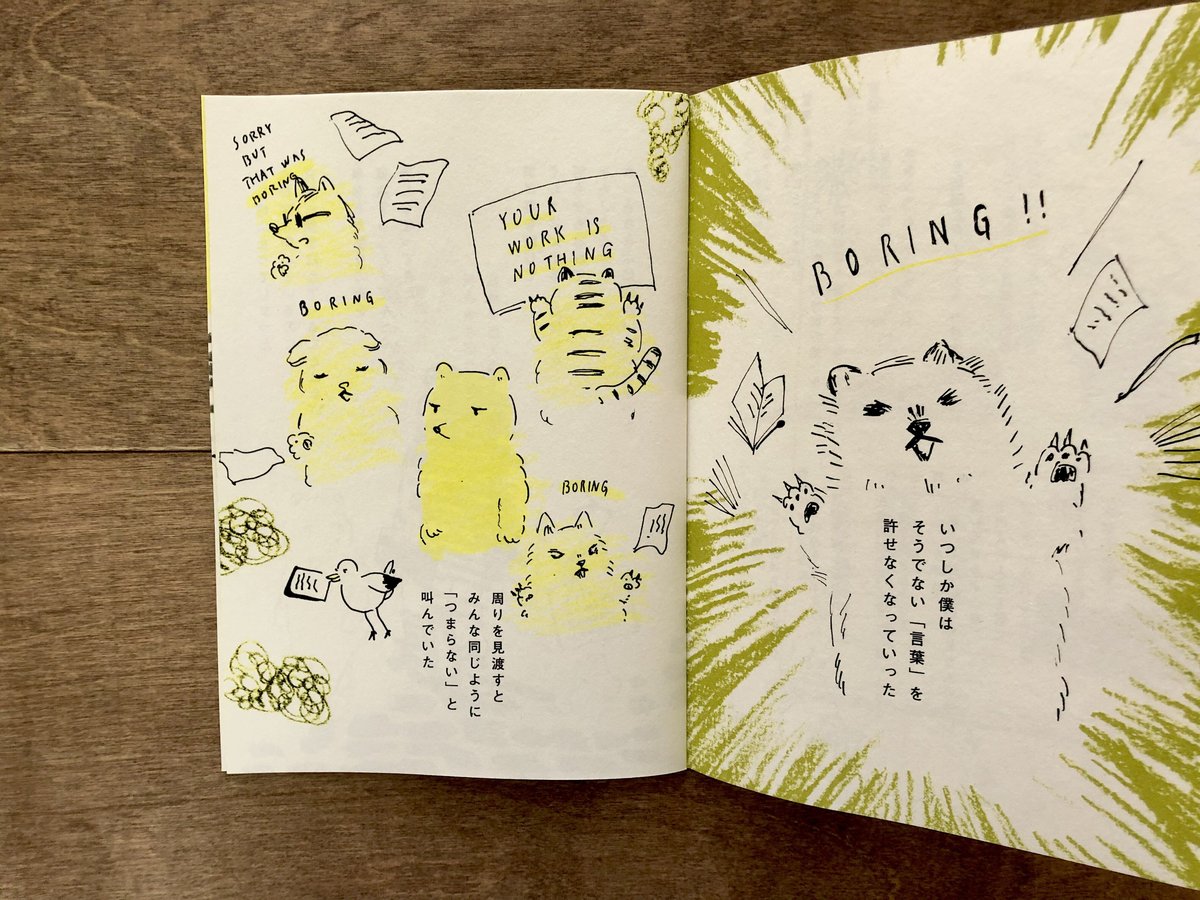 BORING!!
いつしか僕は
そうでない「言葉」を
許せなくなっていった
SORRY
BUT
THAT WAS
BORING
YOUR
WORK IS
NOTHING
BORING
BORING
周りを見渡すと
みんな同じように
「つまらない」と
叫んでいた